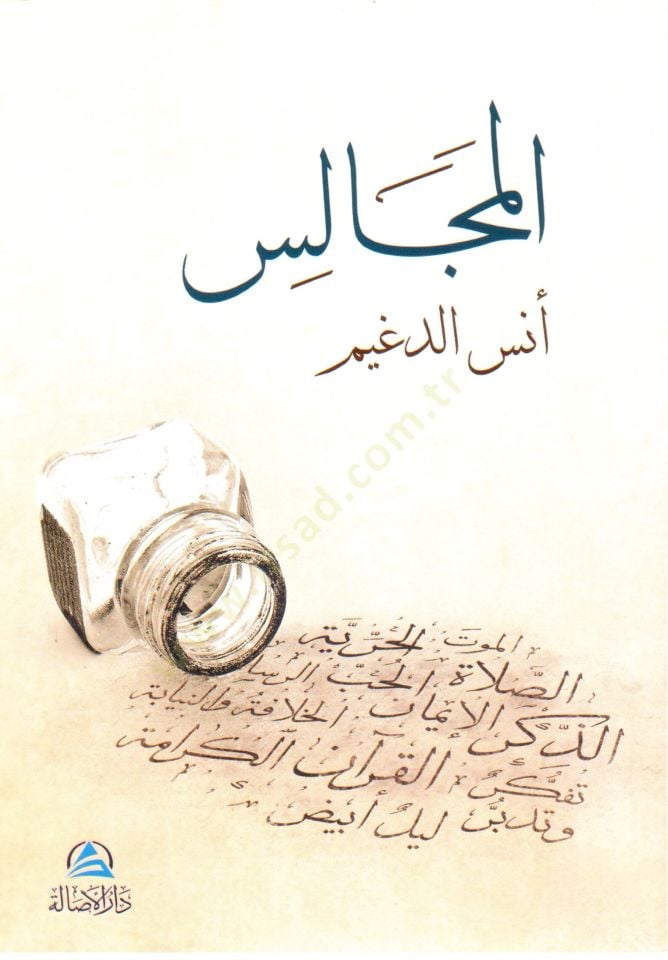 المجَالِس
أنس الدغيم
الموت الحُرّيّة
الصَّلاة الحُبّ الرسا
الذِّكر الإيمان الخلافة والنيابة
تفكُّر القرآن الكرامة
وتدبُّر ليل أبيض
دار الأصالة